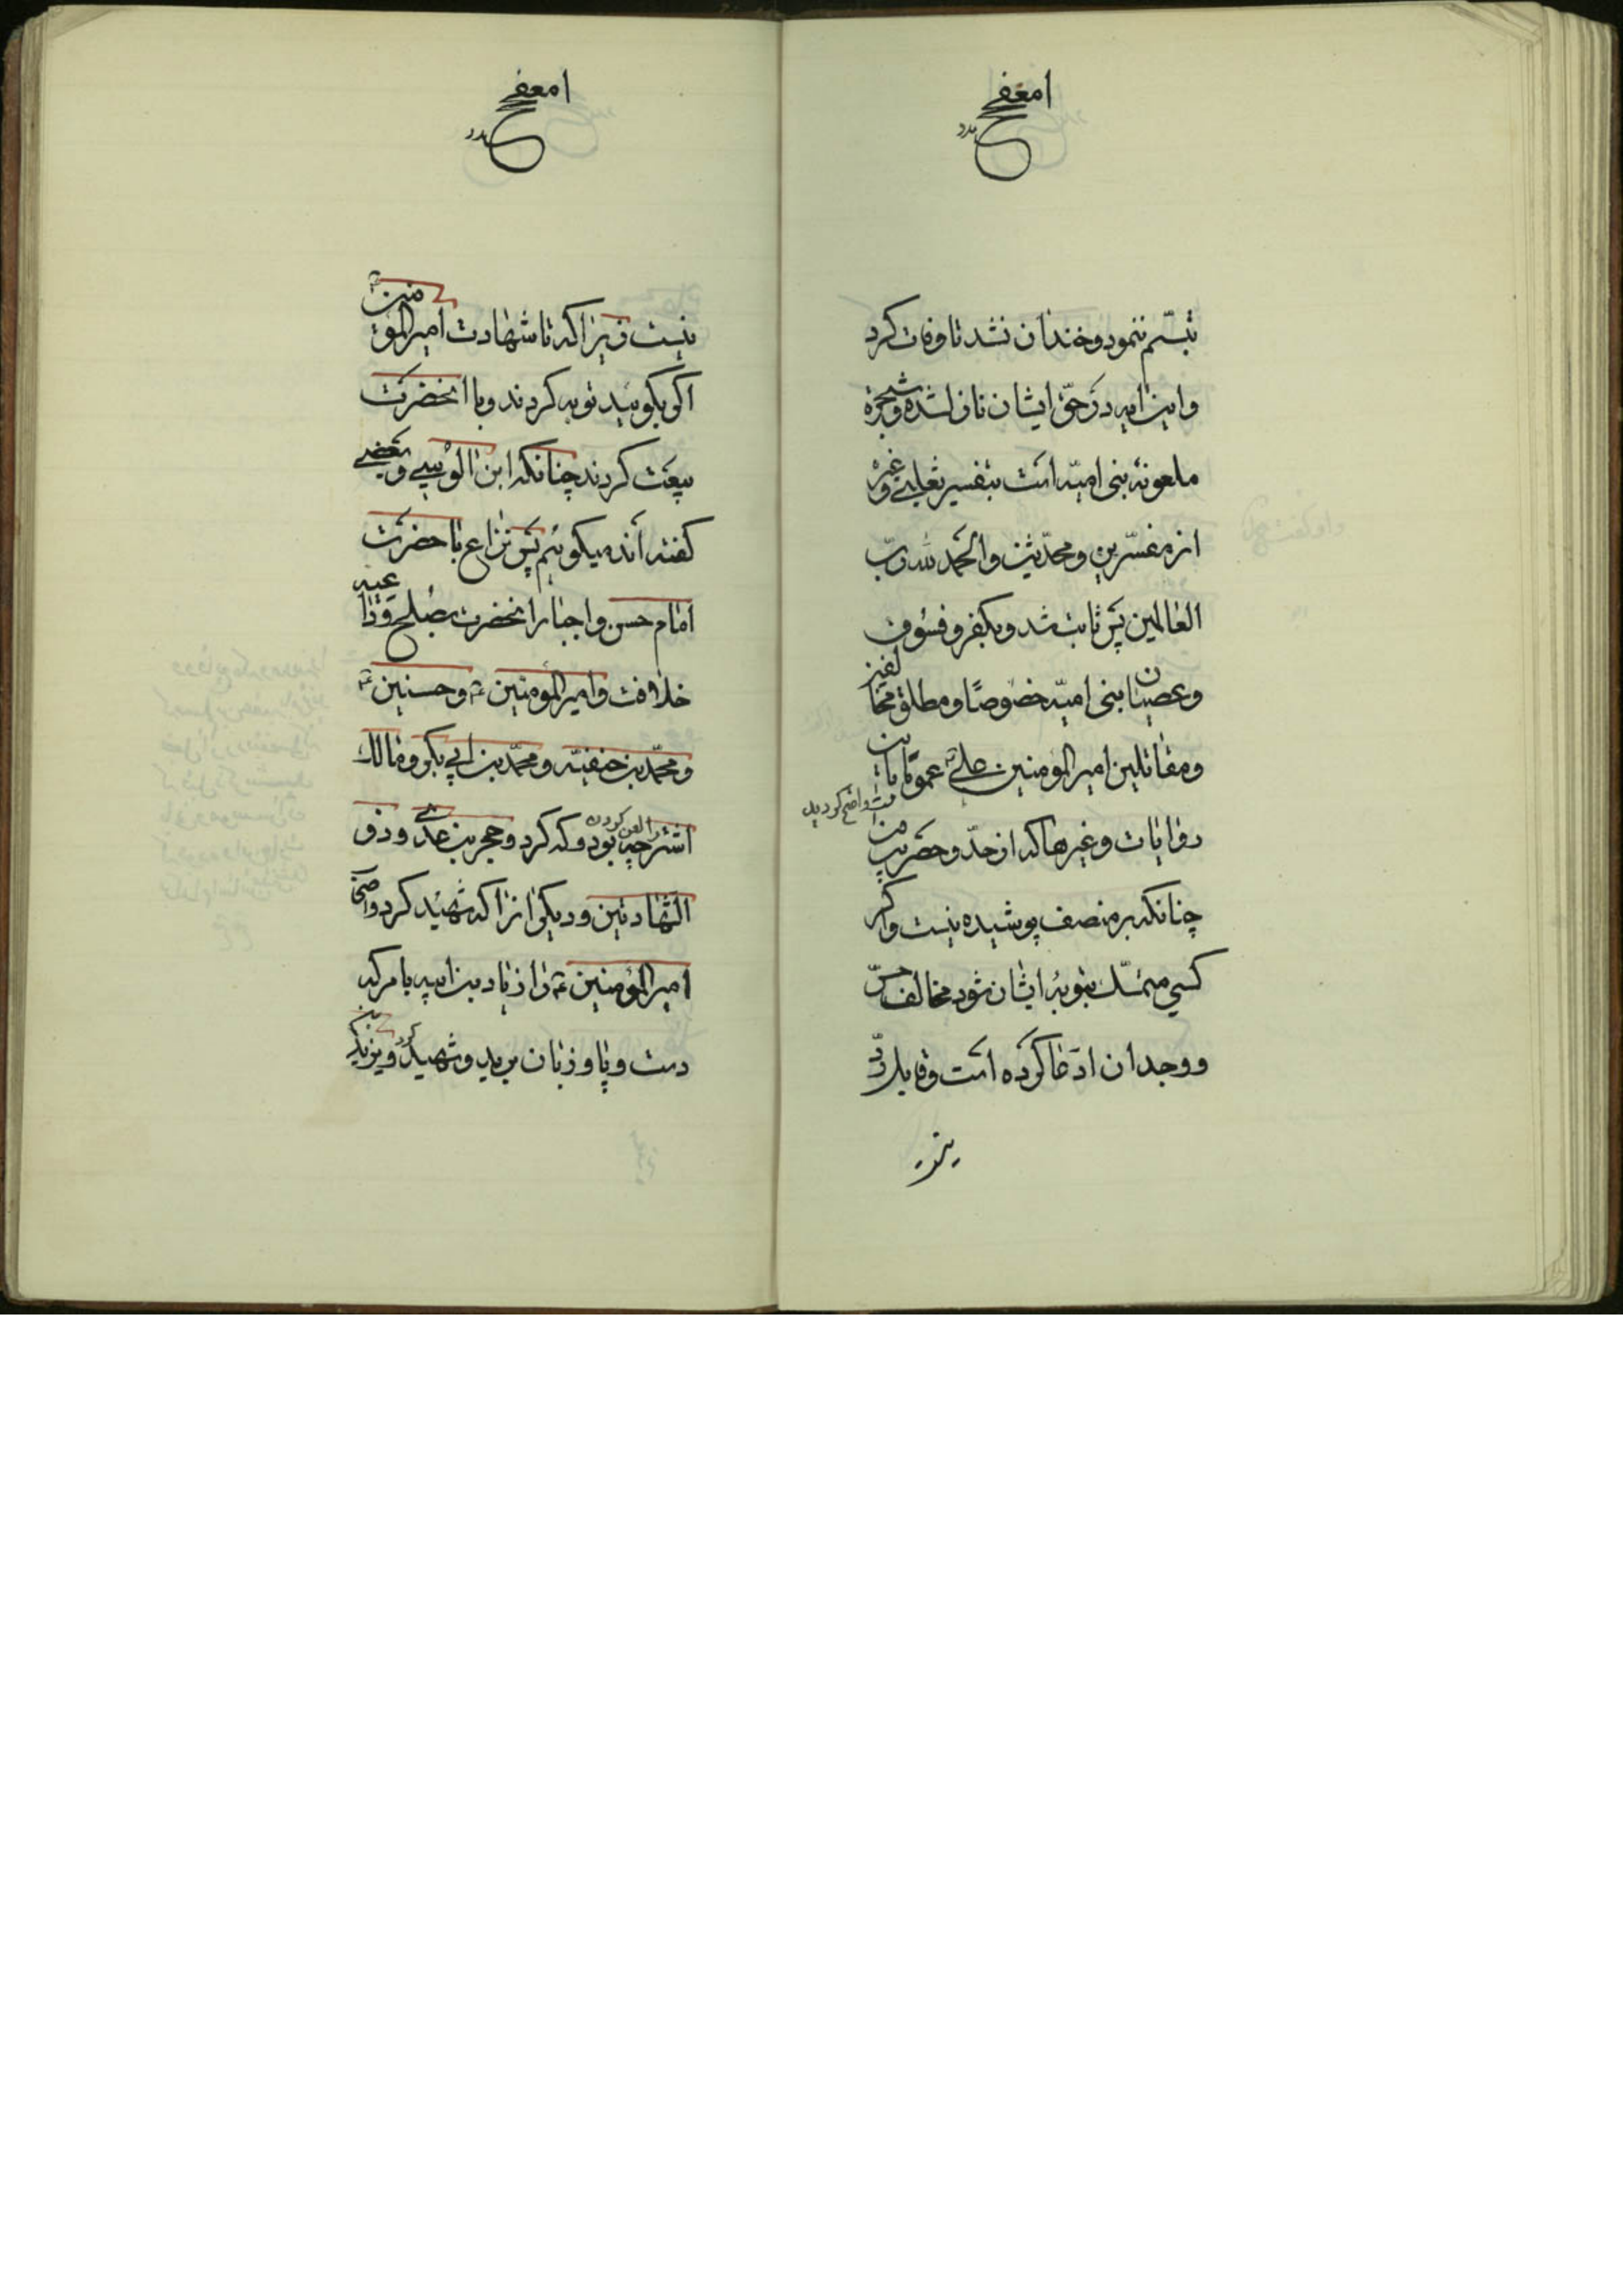 تبسّم ننمود و خندان نشد تا وفات کرد
و این ایه در حقّ ایشان نازل شده و شجرهٔ
ملعونه بنی امیّه است بتفسیر ثعلبی و غیره
از مفسّرین و محدّثین و الحمد لله ربّ
العالمین پس ثابت شد و بکفر و فسوق
و عصیان بنی امیّه خصوصًا و مطلق مخالفین
و مقاتلین امیر المومنین علیؑ عمومًا بایات
روایات و غیرها که از حدّ و حصر بیرون است واضح گردید
چنانکه بر منصف پوشیده نیست و اگر
کسی متمسّک بتوبهٔ ایشان شود مخالف حسّ
و وجدان ادّعا کرده است و قابل ردّ
نیست
نیست زیرا که تا شهادت امیر المؤمنینؑ
اگر بگویید توبه کردند و با انحضرت
بیعت کردند چنانکه ابن الوسی و بعضی
گفته اند میگویم پس نزاع با حضرت
امام حسن و اجبار انحضرت بصلح و داعیه
خلافت و امیر المؤمنینؑ و حسنینؑ
و محمّد بن حنفیّه و محمّد بن ابی بکر و مالک
اشتر را لعن کردن چه بود و که کرد و حجر بن عدی و ذو
الشّهادتین و دیگرانرا که شهید کرد و اصحاب
امیر المؤمنینؑ را زیاد بن ابیه بامر که
دست و پا و زبان برید و شهید کرد و یزید